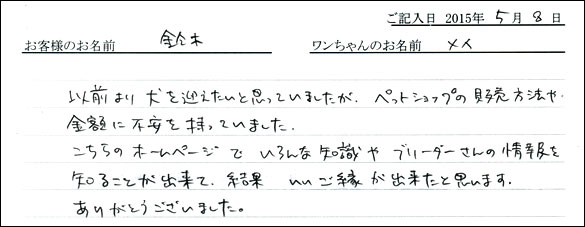 ご記入日 2015年 5月 8日
お客様のお名前 鈴木 ワンちゃんのお名前 メイ
以前より犬を迎えたいと思っていましたが、ペットショップの販売方法や
金額に不安を持っていました。
こちらのホームページでいろんな知識やブリーダーさんの情報を
知ることが出来て、結果 いいご縁が出来たと思います。
ありがとうございました。